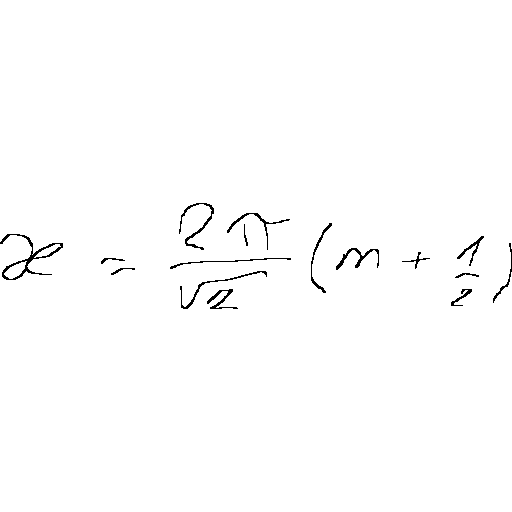 x = \frac{2\pi}{\sqrt{2}} (n + \frac{1}{2})